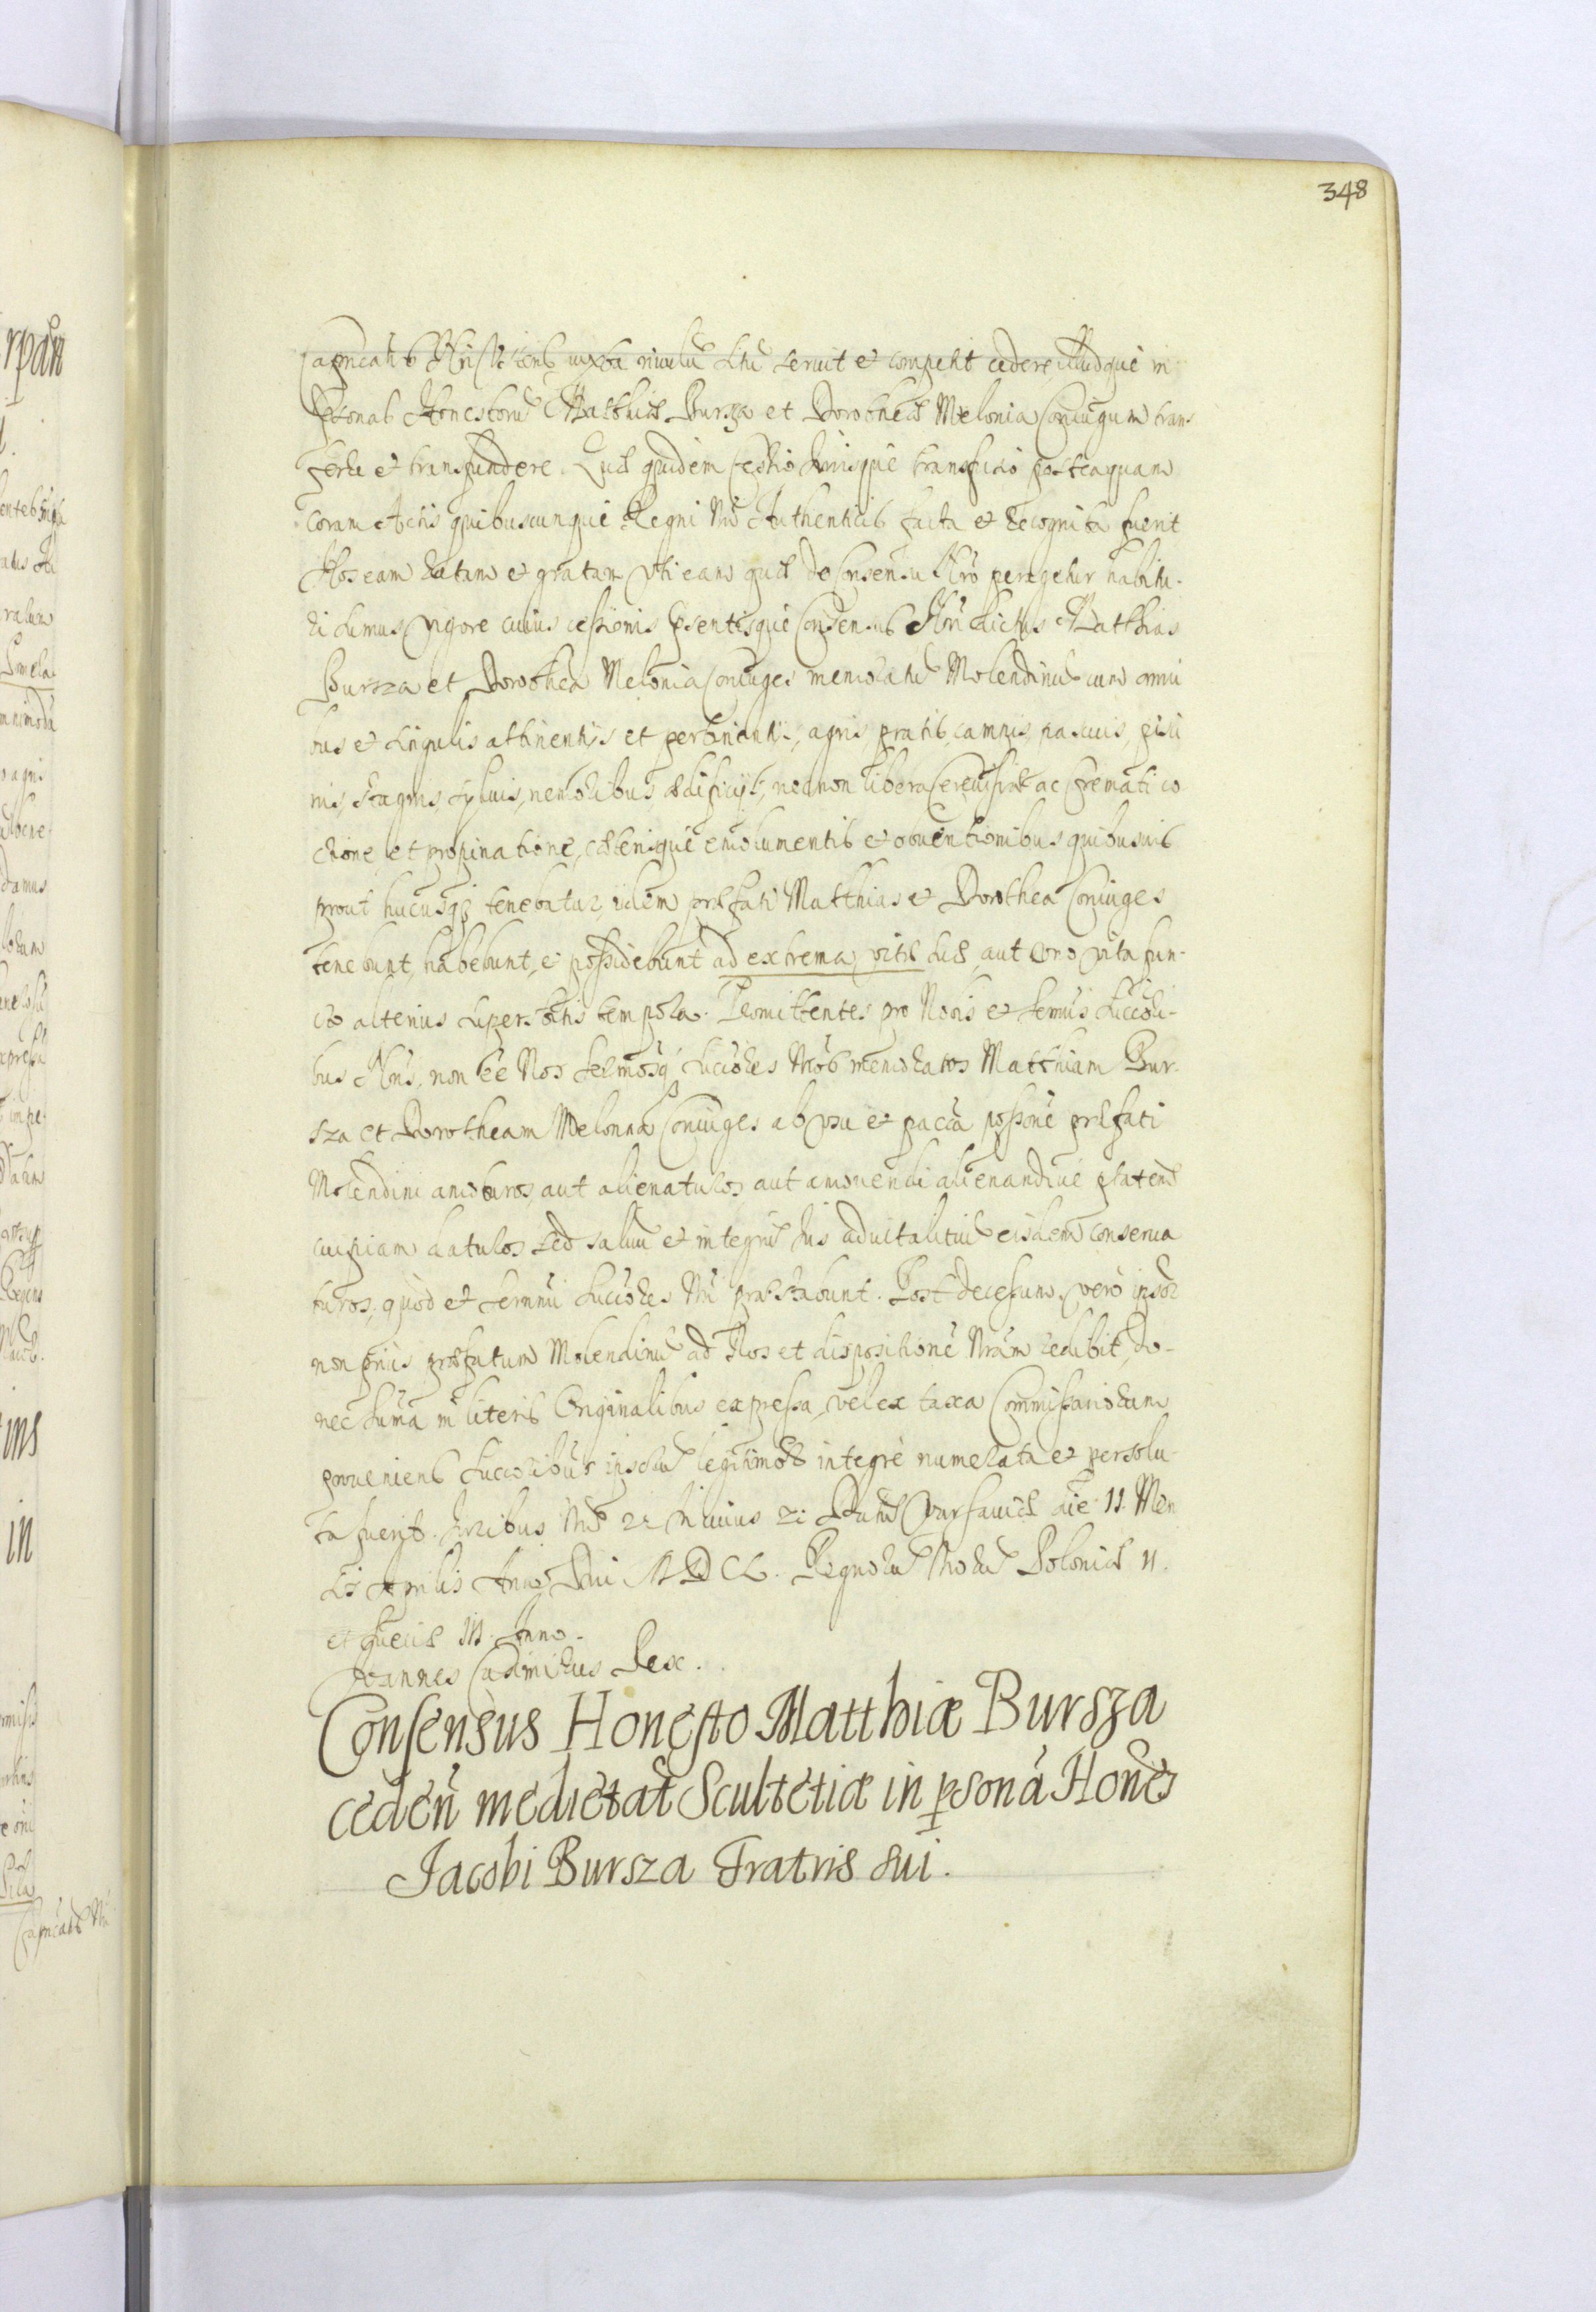 348
iuxta rivulū situ servit et competit cedere, illudque in
Psonas Honestorū Matthiæ Bursza et Dorotheæ Melonia Coniugum trans
ferre et transfundere. Quæ quidem Cessio Jurisque transfusio posteaquam
coram Actis quibuscunque Regni Nri Authenticis facta et recognita fuerit
Nos eam ratam et gratam uti eam quæ de Consensu Nro peragetur habitu-
ri sumus vigore cuius cessionis pṡentisque Consensus Nri dictus Matthias
Bursza et Dorothea Melonia Coniuges memoratū Molendinū cum omni
bus et singulis attinentijs et pertinentijs, agris, pratis, campis, pascuis, pisci
nis, stagnis sylvis, nemoribus, ædificijs, necnon libera Cerevisiæ ac Cremati co
ctione, et propinatione, cæterisque emolumentis et obventionibus quibusvis
prout hucusq; tenebatur, idem præfati Matthias et Dorothea Coniuges
tenebunt, habebunt, et possidebunt ad extrema vitæ suæ, aut uno vita fun-
cto alterius superstitis tempora. Promittentes pro Nobis et Sermis Succeso-
bus Nris, non ee Nos Sermosq; Succres Nros memoratos Matthiam Bur-
sza et Dorotheam Melonna Coniuges ab usu et pacca possone præfati
Molendini amoturos, aut alienaturos aut amovendi alienandive ptatem
cuipiam daturos sed salvū et integrū Jus advitalitiū eisdem conserva
turos, quod et Sermi Succores Nri præstabunt. Post decessum vero ipsor
non prius præfatum Molendinū ad Nos et dispositionē Nram redibit, do-
nec suma in literis Originalibus expressa, vel ex taxa Commissariorum
proveniens Succesoribus ipsorū legitimis integre numerata et persolu-
ta fuerit. Juribus Nris Datū Varsaviæ die 11. Men
sis Aprilis Anno Dni MDCL. Regnorū Nrorū Poloniæ II.
et Sueciæ III. Anno.
Joannes Casimirus Rex.
Consensus Honesto Matthiæ Bursza
ceden̄ medietat̄ Scultetiæ in psonā Hones
Jacobi Bursza Fratris sui.